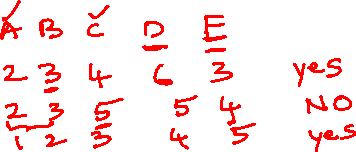 A B C D E
2 3 4 6 3 yes
2 3 5 5 4 NO
1 2 3 4 5 yes